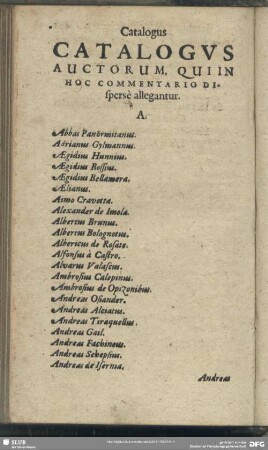 Catalogus
CATALOGVS
AUCTORUM, QUI IN
HOC COMMENTARIO DI-
spersè allegantur.
A.
Abbas Panormitanus.
Adrianus Gylmannus.
Ægidius Hunnius.
Ægidius Rossius.
Ægidius Bellamera.
Ælianus.
Aimo Cravetta.
Alexander de Imola.
Albertus Brunus.
Albertus Bolognetus.
Albericus de Rosate.
Alfonsus à Castro.
Alvarus Valascus.
Ambrosius Calepinus.
Ambrosius de Opizonibus.
Andreas Osiander.
Andreas Alciatus.
Andreas Tiraquellus.
Andreas Gail.
Andreas Fachineus.
Andreas Schepsius.
Andreas de Isernia.
Andreas
SLUB
DFG